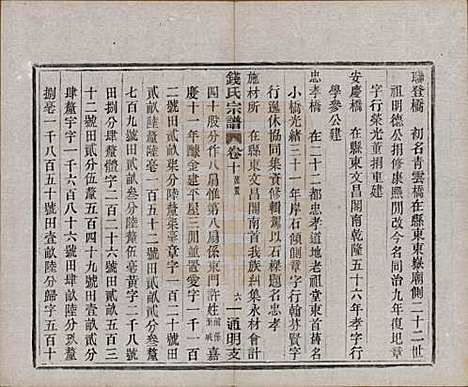 聯登橋　初名青雲橋在縣東東嶽廟側二十二世
祖明德公捐修康熙閒改今名同治九年復圯章
字行榮光董捐重建
安慶橋　在縣東文昌閣南乾隆五十六年孝字行
學參公建
忠孝橋　在二十二都忠孝道地老祖堂東首其
小橋光緒三十一年岸石傾側章字行翰芬賢字
行邁休協同集資修輯駕以石樑題名忠孝
施材所　在縣東文昌閣南首我族糾集永材會計
錢氏宗譜　卷十
六　一通明支
四十股分作八扇惟第八扇係東門許姓
慶十一年釀金屋平屋三閒並置愛字一千一百
二號田貳畝柒分陸釐柒毫章字一百二十號田
貳畝陸釐陸毫一百五十二號田貳畝貳分肆釐
七百九號田貳畝叁分陸釐伍毫黃字二百二十一號
田捌分肆釐體字二百二十六號田貳畝肆分
十二號田貳分伍釐五百四十九號田壹畝貳分
肆釐壹毫一千六百八十號田壹畝陸分玖釐
捌毫一千八百五十號田壹畝陸分歸字五百十